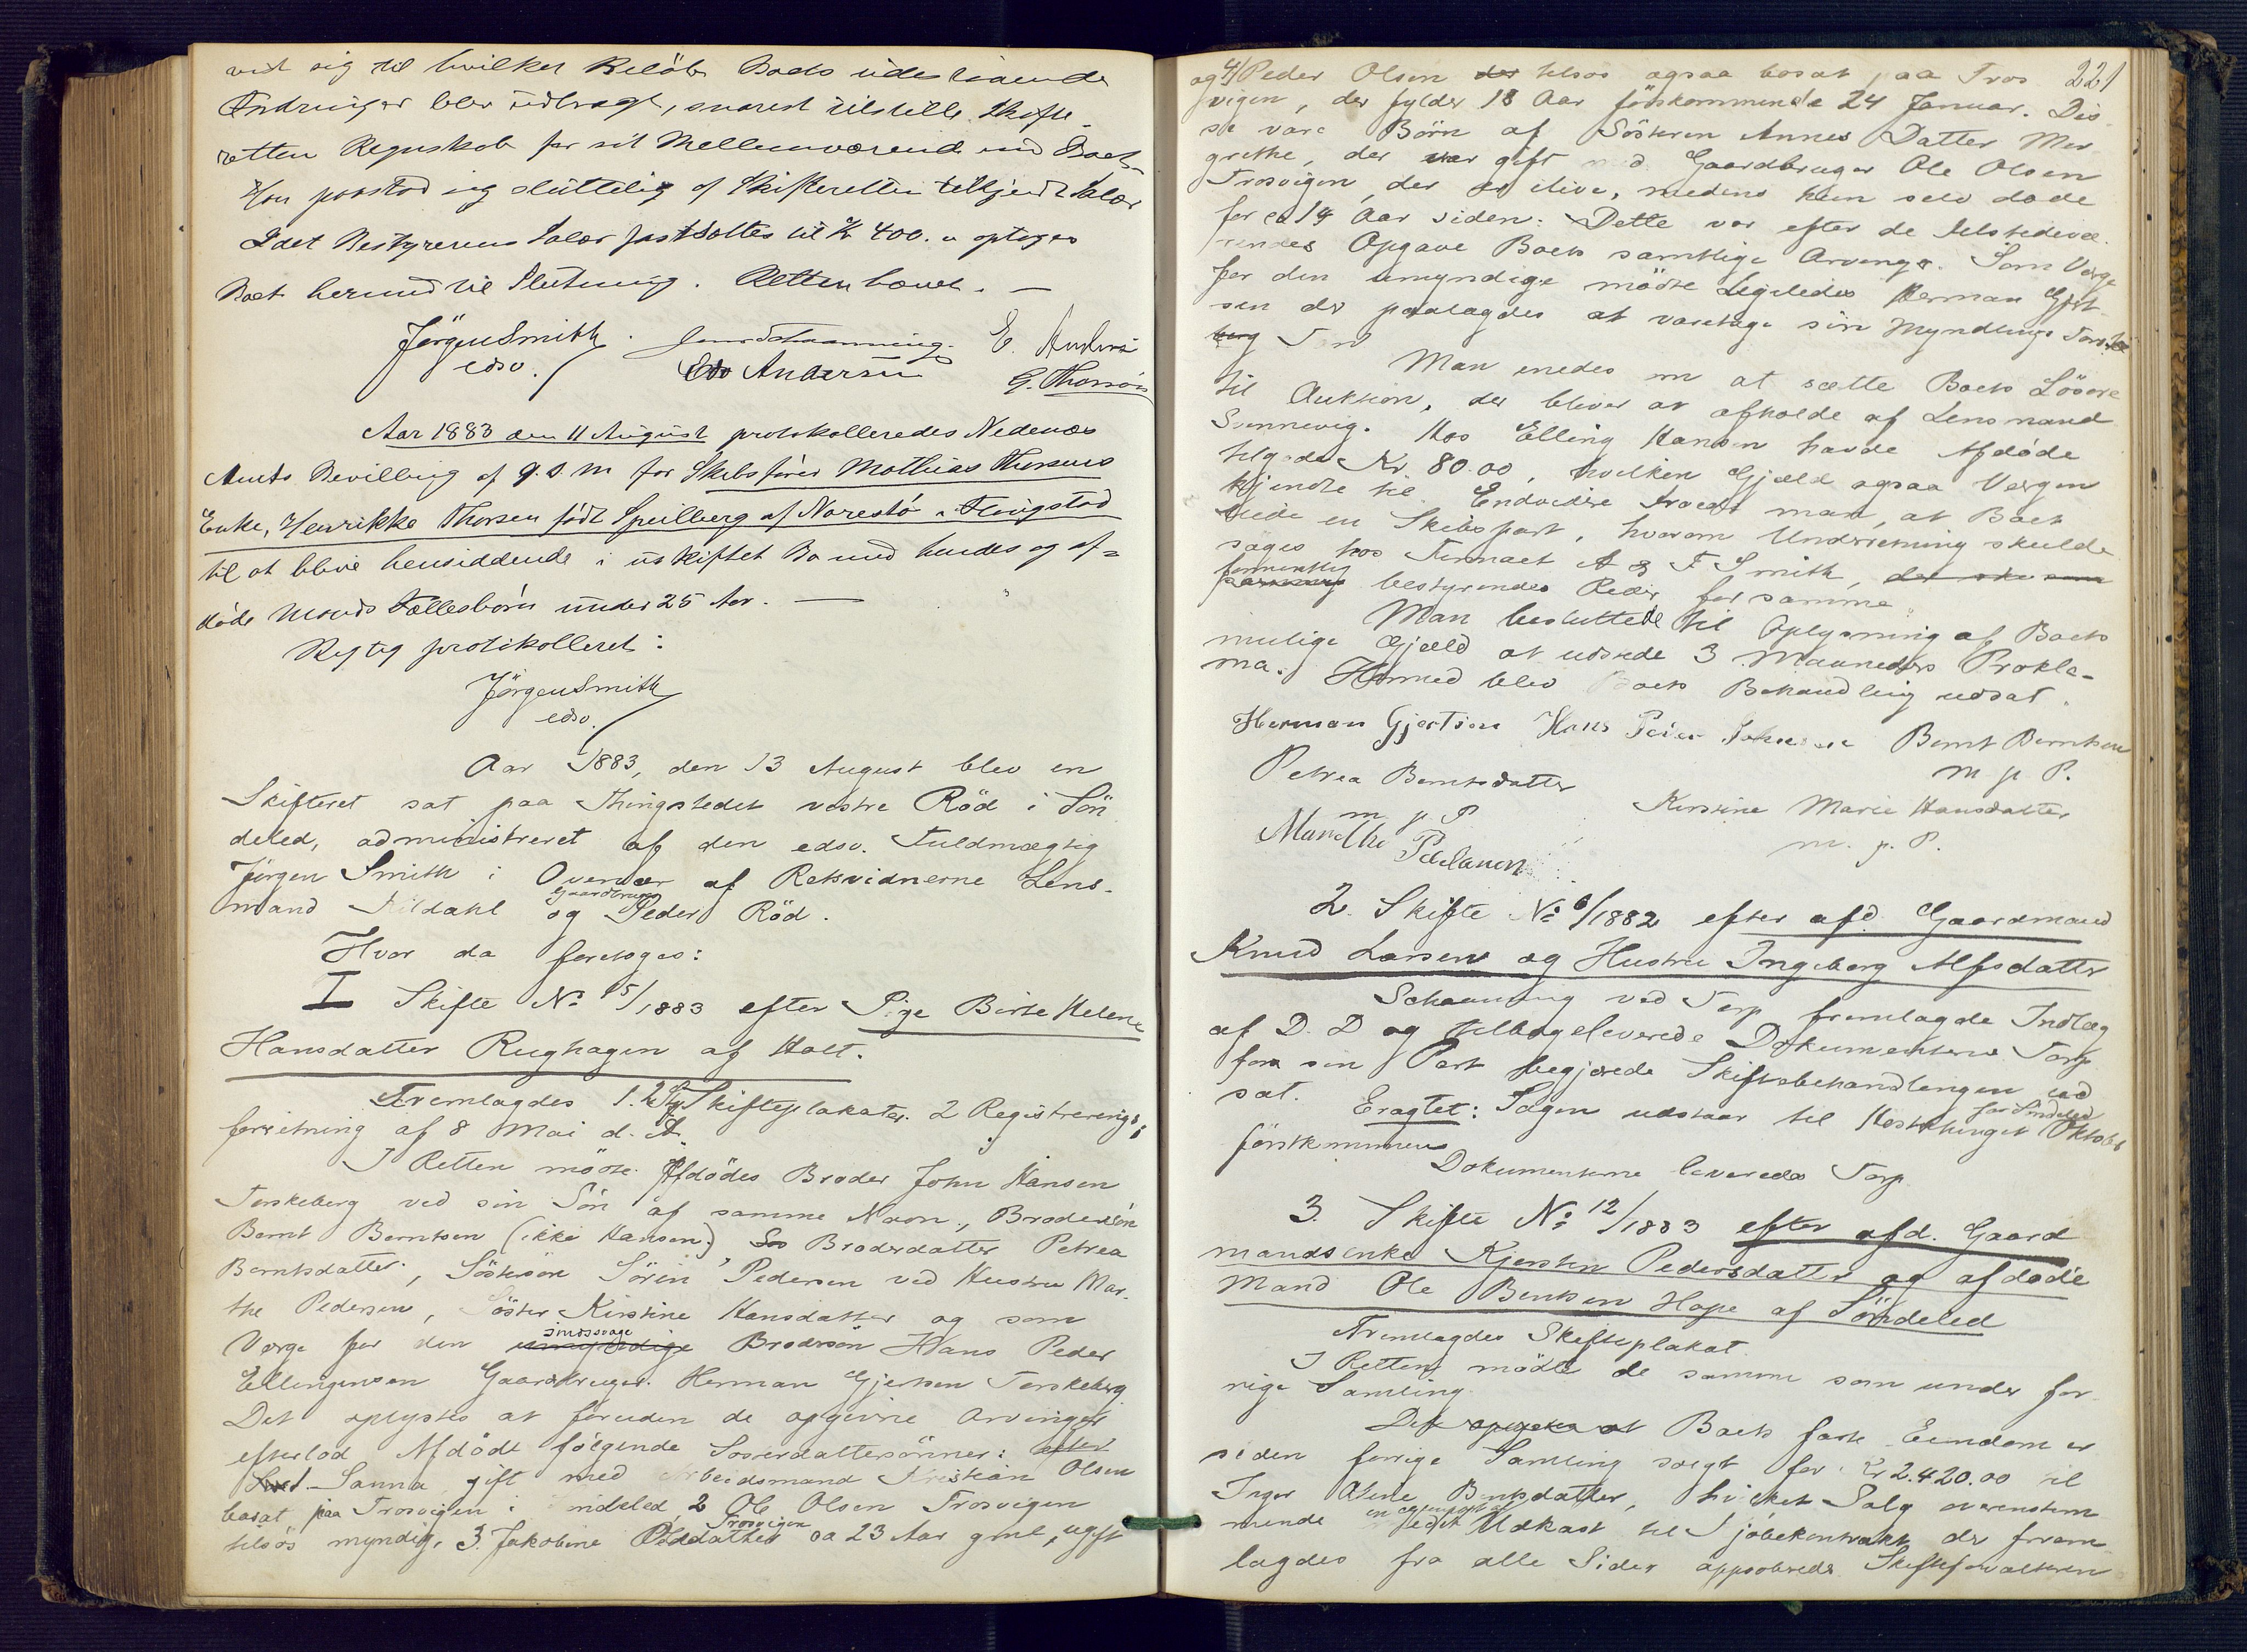 vist sig til hvilket Beløb Boets udestaaende
Fordringer blev udbragt, snarest tilstille Skifte-
retten Regnskab for sit Mellemværende med Boet.
Han paastod sig sluttelig af Skifteretten tilkjendt Salær
Idet Bestyrerens Salær fastsattes til Kr 400. " optoges
Boet hermed til Slutning. Retten hævet. —
Jørgen Smith. Schanning. E. Anders
edsv. Edv Andersen G. Thorsøn
Aar 1883 den 11 August protokolleredes Nedenæs
Amts Bevilling af 9. d. M for Skibsfører Mathias Thorsens
Enke, Henrikke Thorsen født Speilberg af Narestø i Flosgstad
til at blive hensiddende i uskiftet Bo med hendes og af-
døde Mands Fællesbørn under 25 Aar. —
Rigtig protokolleret:
Jørgen Smith
edsv.
Aar 1883, den 13 August blev en
Skifteret sat paa Thingstedet vestre Röd i Sön
deled, administreret af den edsv. Fuldmægtig
Jørgen Smith i Overvær af Retsvidnerne Lens-
mand Kildahl og Gaardbruger Peder Röd.
Hvor da foretoges:
I Skifte No 15/1883 efter Pige Birte Helene
Hansdatter Rughagen af Holt.
Fremlagdes 1. Skifteplakater. 2 Registrerings
forretning af 8 Mai d. A.
I Retten mödte Afdödes Broder John Hansen
Torskeberg ved sin Sön af samme Navn, Brodersön
Bernt Berntsen (ikke Hansen), Broderdatter Petrea
Berntsdatter, Söstersön Sören Pedersen ved Hustru Mar-
the Pedersen, Söster Kirstine Hansdatter og som
Verge for den umyndige sindssvage Brodersön Hans Peder
Ellingensen Gaardbruger Herman Gjertsen Torskeberg.
Det oplystes at foruden de opgivne Arvinger
efterlod Afdöde fölgende Sösterdattersönner: efter
Sanna gift med Arbeidsmand Kristian Olsen
bosat paa Trosvigen i Söndeled 2 Ole Olsen Trosvigen
tilsös myndig, 3. Jakobine Olsdatter Trosvigen ca 23 Aar gml, ugift
221
og 4/ Peder Olsen tilsøs ogsaa bosat paa Tros
vigen, der fylder 18 Aar førstkommende 24 Januar. Dis
se vare Börn af Sösteren Annes Datter Mar
grethe, der var gift med Gaardbruger Ole Olsen
Trosvigen, der er ilive, medens hun selv døde
for ca 14 Aar siden. Dette var efter de tilstedevæ-
rendes Opgave Boets samtlige Arvinger. Som Verge
for den umyndige mödte ligeledes Herman Gjert
sen der paalagdes at varetage sin Myndlings Tarv.
Man enedes om at sætte Boets Lösöre
til Auktion, der bliver at afholde af Lensmand
Svennevig. Hos Elling Hansen havde Afdøde
tilgode Kr. 80.00, hvilken Gjæld ogsaa Vergen
kjendte til. Endvidere troede man, at Boet
eiede en Skibspart, hvorom Underretning skulde
søges hos Firmaet A & F Smith,
formentlig bestyrendes Reder for samme.
Man besluttede til Oplysning af Boets
mulige Gjæld at udstede 3 Maaneders Prokla-
ma. Hermed blev Boets Behandling udsat.
Herman Gjertsen Hans Peder Johnsen Bernt Berntsen
m p P.
Petrea Berntsdatter
m p P
Kirstine Marie Hansdatter
m. p. P.
Marthe Pedersen
2. Skifte No 6/1882 efter afd. Gaardmand
Knud Larsen og Hustru Ingeborg Alfsdatter
Schanning ved Torp fremlagde Indlæg
af D. D og tilbageleverede Dokumenterne. Torp
for sin Part begjærede Skiftebehandlingen ud
sat. Eragtet: Sagen udstaar til Høstthinget for Söndeled Oktober
førstkommende
Dokumenterne leveredes Torp
3. Skifte No 12/1883 efter afd. Gaard
mandsenke Kjersten Pedersdatter og afdøde
Mand Ole Bentsen Hope af Söndeled
Fremlagdes Skifteplakat
I Retten mödte de samme som under for-
rige Samling.
Det oplystes at Boets faste Eiendom er
siden forrige Samling solgt for Kr 2.420.00 til
Inger Alene Bentsdatter, hvilket Salg overenstem
mende Udkast til Kjøbekontrakt der frem
lagdes fra alle Sider approberedes Skifteforvalteren